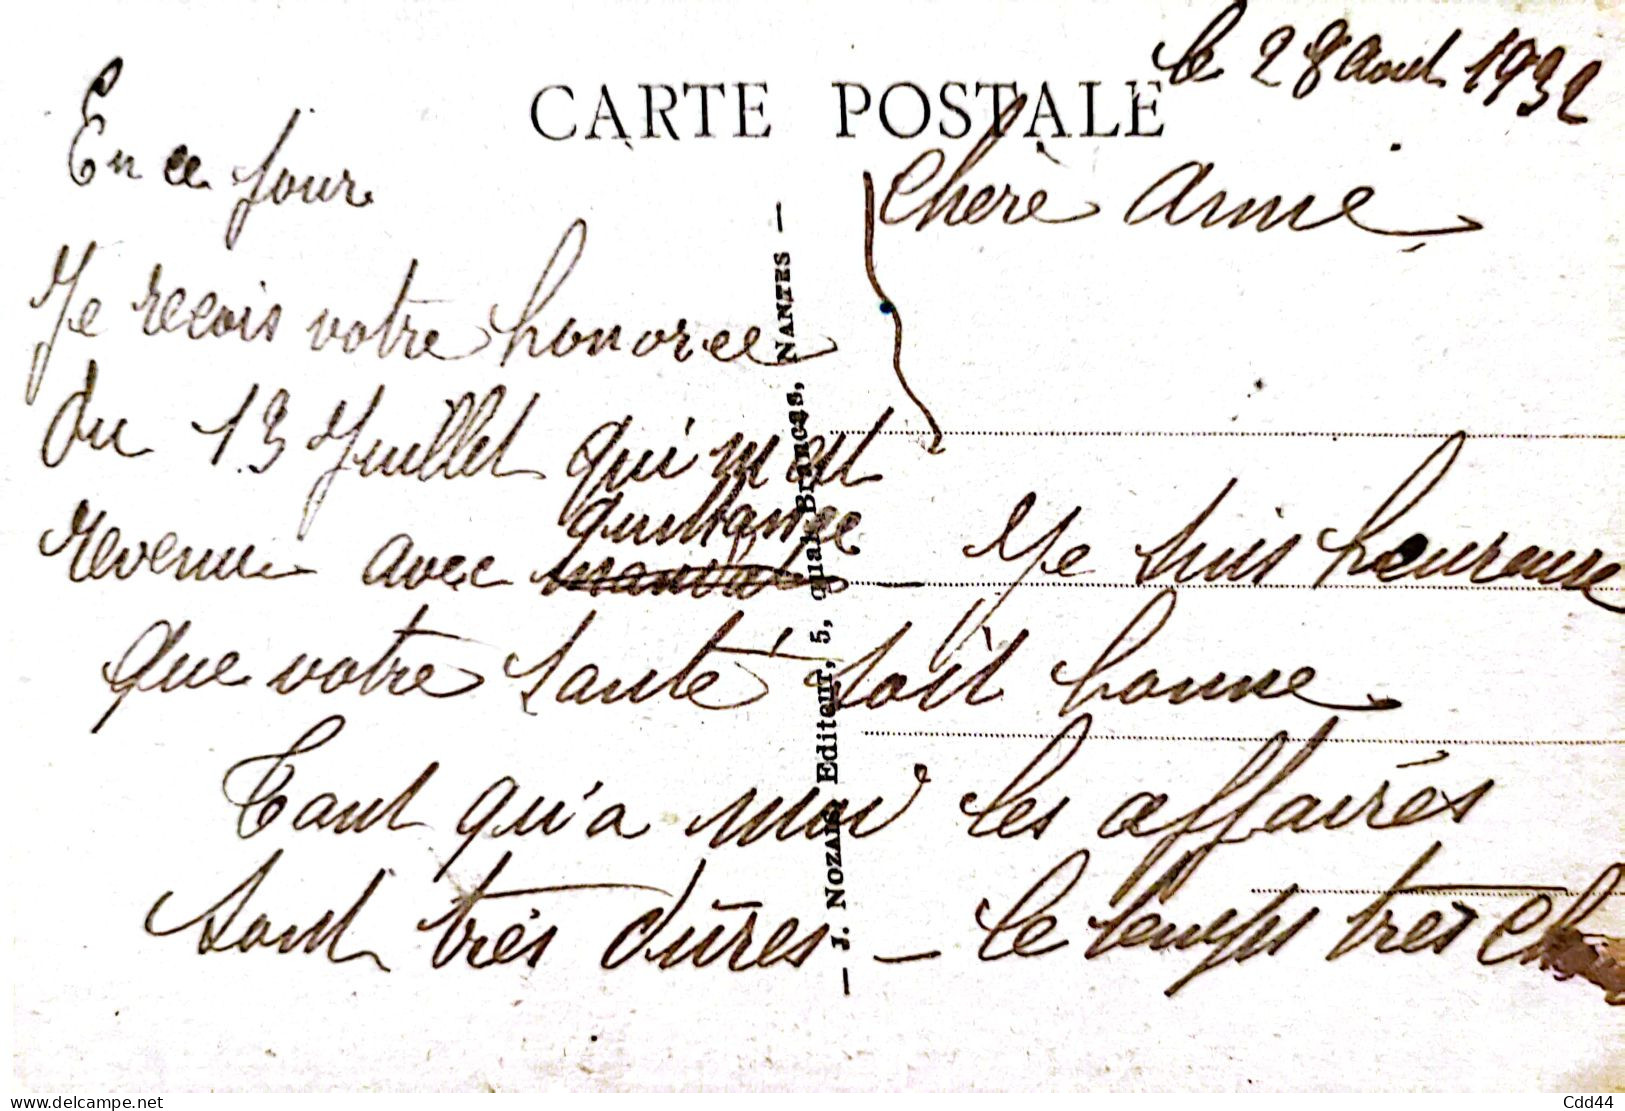 le 28 Aout 1932
CARTE POSTALE
Chère Amie
En ce jour
Je recois votre honorée
du 13 Juillet qui m'est
quittance
revenu avec — Je suis heureuse
que votre santé soit bonne
Tant qu'a moi les affaires
sont très dures — le temps très
— J. NOZAIS, Editeur, 5, quai Brancas, NANTES —
www.delcampe.net
Cdd44